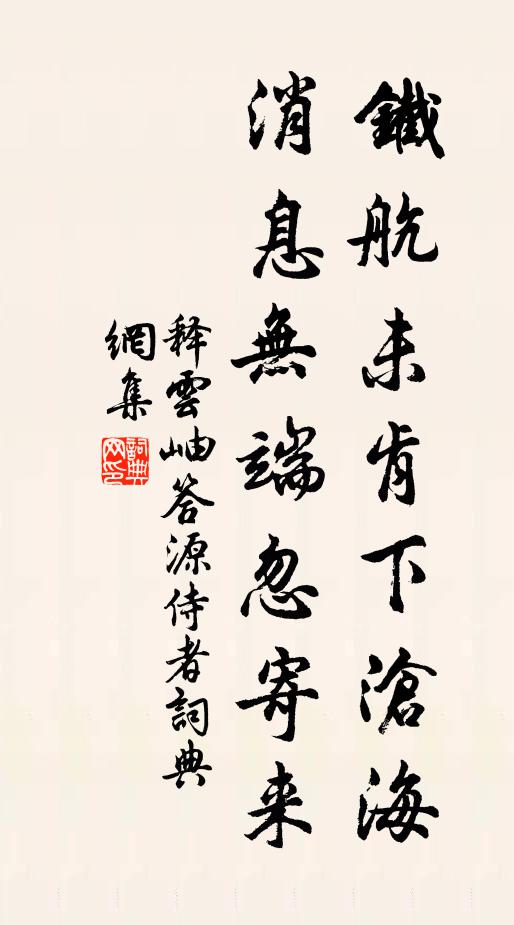 鐵航未肯下滄海
消息無端忽寄来
释雲岫答源侍者詞典
網集
詞典网印